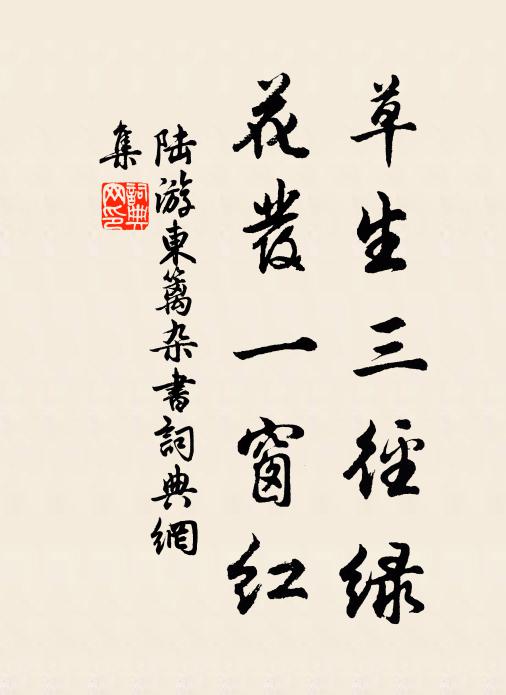 草生三徑緑
花發一窗紅
陸游東籬杂書詞典網
集
詞典网印